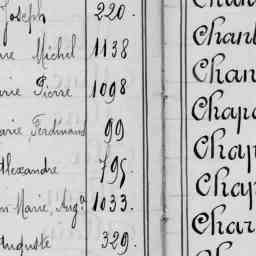 Joseph 220.
Michel 1138
Pierre 1098
arie Ferdinand 99
Alexandre 795.
Marie, Augᵗᵉ 1033.
Auguste 329.
Chan
Chan
Chap
Chap
Chap
Char